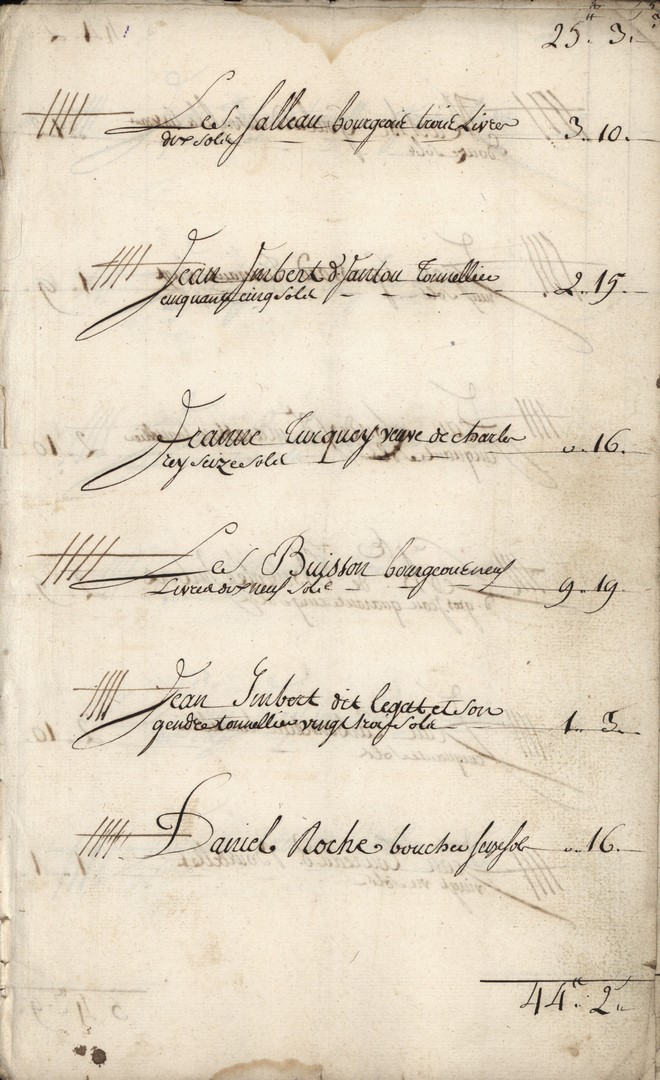 25. 3.
Les Salleau bourgeois trois Livres 3.. 10..
dix solz
Jean Imbert d'Santon Tonnellier .. 2.. 15.
cinquante cinq solz
Jeanne Turquey veuve de charles .. 16.
rey seize solz
Les Buisson bourgeois neuf
Livres dix neuf solz 9.. 19.
Jean Imbert dit legat et son
gendre tonnellier vingt trois solz 1.. 3..
Daniel Roche boucher seize solz .. 16.
44.. 2..